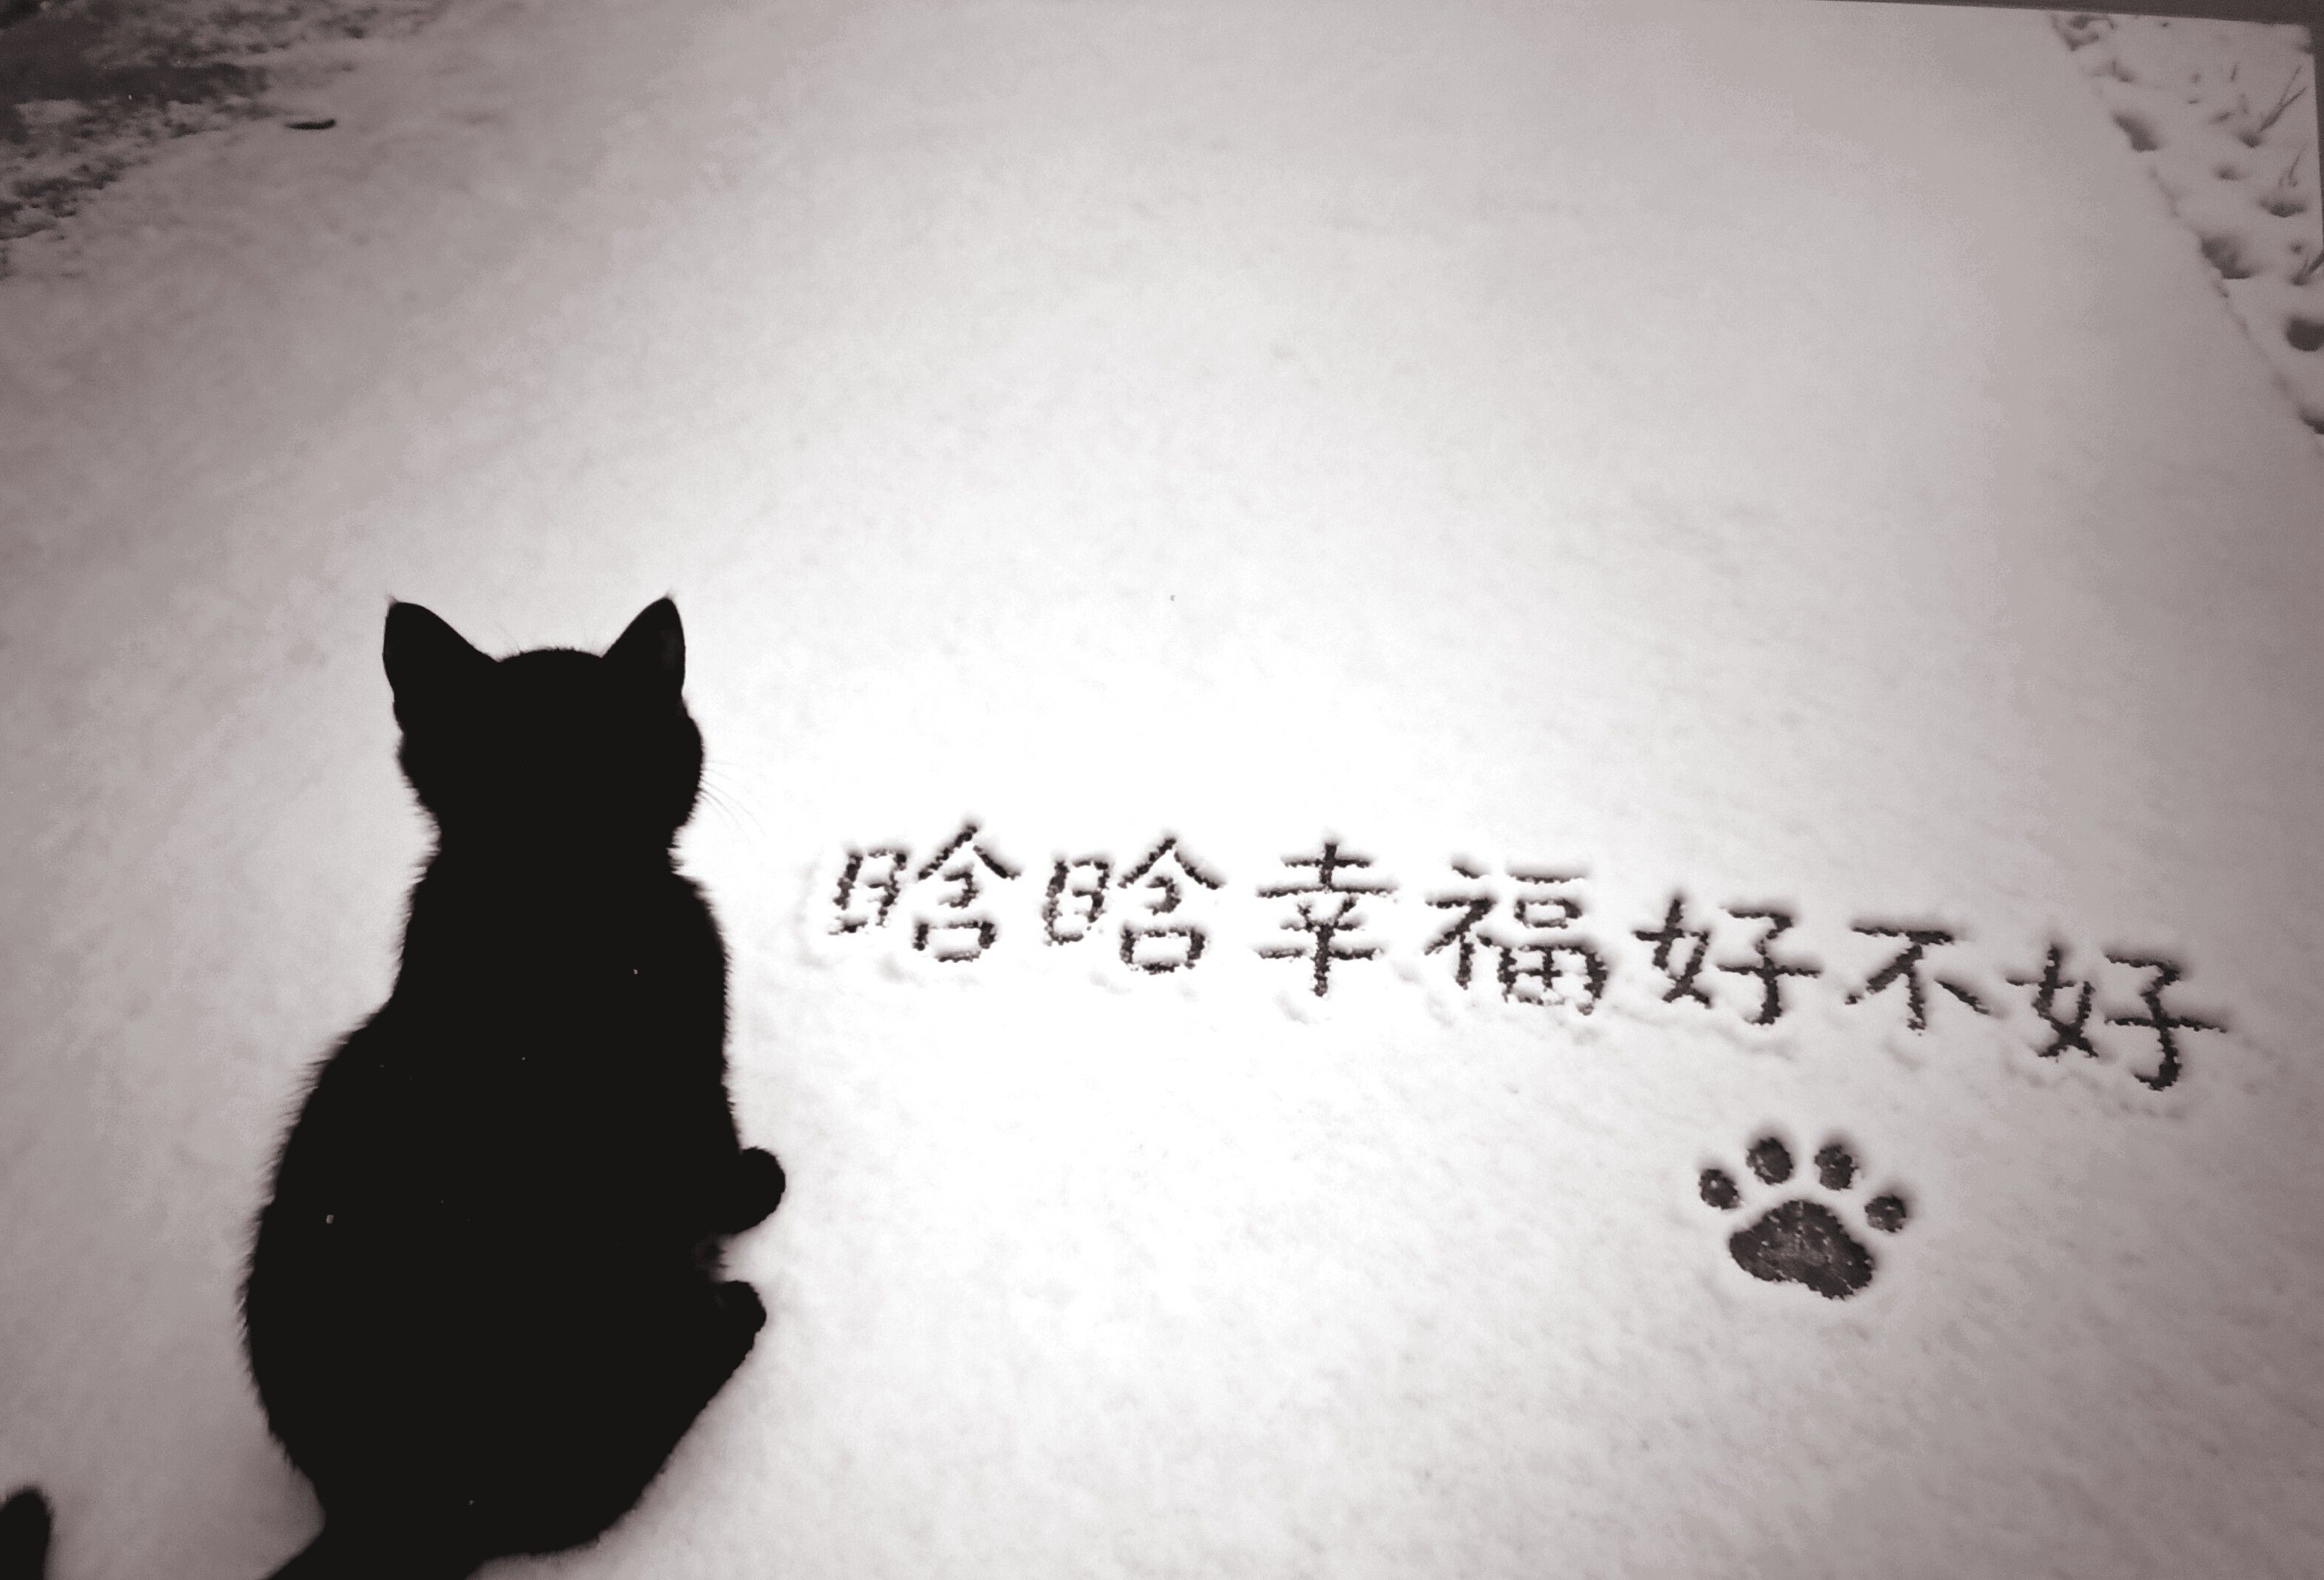 晗晗幸福好不好